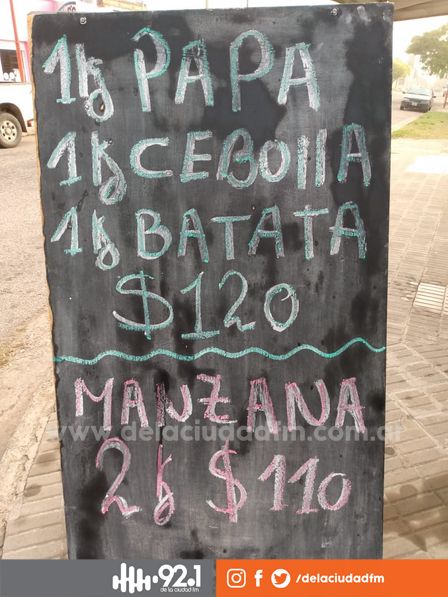 1k PAPA
1k CEBOllA
1k BATATA
$120
MANZANA
www.delaciudadfm.com.ar
2k $110
92.1
de la ciudad fm
/delaciudadfm